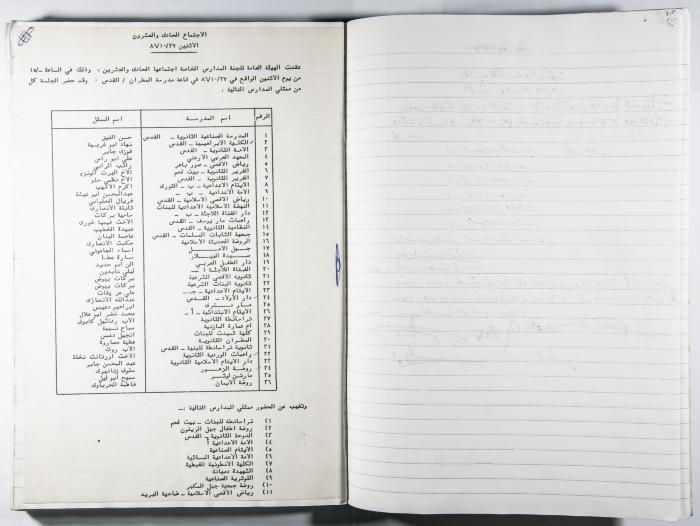 الاجتماع الحادي والعشرون
الاثنين ٨٦/١٠/٢٧
عقدت الهيئة العامة للجنة المدارس الخاصة اجتماعها الحادي والعشرين ، وذلك في الساعة
من يوم الاثنين الواقع في ٨٦/١٠/٢٧ في قاعة مدرسة المطران / القدس . وقد حضر الجلسة كل
من ممثلي المدارس التالية :
الرقم اسم المدرسة اسم الممثل
١ المدرسة الصناعية الثانوية ـ القدس حسن القيق
٢ الكلية الابراهيمية ـ القدس نهاد ابو غربية
٣ الامة الثانوية ـ القدس فوزي جابر
٤ المعهد العربي الاردني علي ابو راس
٥ رياض الاقصى ـ صور باهر راتب الرابي
٦ الفرير الثانوية ـ بيت لحم الاخ البرت الونزو
٧ الفرير الثانوية ـ القدس الاخ نظمي حلو
٨ الايتام الاعدادية ـ ب ـ الثوري اكرم الاشهب
٩ الامة الاعدادية ـ ب ـ عبدالمحسن ابو عيشة
١٠ رياض الاقصى الاسلامية ـ القدس فريال الحلواني
١١ النهضة الاسلامية الاعدادية للبنات نهاية الانصاري
١٢ دار الفتاة اللاجئة ـ ب ـ سامية بركات
١٣ راهبات مار يوسف ـ القدس الاخت فيميا خوري
١٤ النظامية الثانوية ـ القدس عبيدة الخطيب
١٥ جمعية الشابات المسلمات ـ القدس عاصمة البنان
١٦ الروضة الحديثة الاسلامية حكمت الانصاري
١٧ جيل الامل اسماء الجاعوني
١٨ سيدة البيلار سارة عطا
١٩ دار الطفل العربي الن ابو حديد
٢٠ الفتاة اللاجئة أ ليلى عابدين
٢١ ثانوية الاقصى الشرعية بركات بيوض
٢٢ ثانوية البنات الشرعية بركات بيوض
٢٣ الايتام الاعدادية ـ جـ ـ علي عريقات
٢٤ دار الاولاد ـ القدس عبدالله الانصاري
٢٥ مار متري ابراهيم دعيس
٢٦ الايتام الابتدائية ـ أ ـ محمد خضر ابو هلال
٢٧ تراسانطة الثانوية
٢٨ ام عمارة المازنية سماح نسيبة
٢٩ كلية شميدت للبنات انجيل دعس
٣٠ المطران الثانوية عطية مصاروة
٣١ ثانوية تراسانطة للبنية ـ القدس الاب روك
٣٢ راهبات الوردية الثانوية الاخت اورتانت نخلة
٣٣ دار الايتام الاسلامية الثانوية عبد المحسن جابر
٣٤ روضة الزهور سلوى زنانيري
٣٥ مارتن لوثر سميح ابو ليل
٣٦ روضة الايمان فاطمة الحرباوي
وتغيب عن الحضور ممثلي المدارس التالية :ـ
١) تراسانطة للبنات ـ بيت لحم
٢) روضة اطفال جبل الزيتون
٣) الدوحة الثانوية ـ القدس
٤) الامة الاعدادية أ
٥) الايتام الصناعية
٦) الامة الاعدادية المسائية
٧) الكلية الانطونية القبطية
٨) الشهيدة دميانة
٩) اللوثرية الصناعية
١٠) روضة جمعية جبل المكبر
١١) رياض الاقصى الاسلامية ـ ضاحية البريد